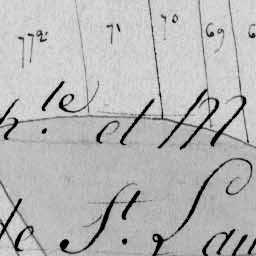 772 71 70 69 6
h.le et M
te St. Lau